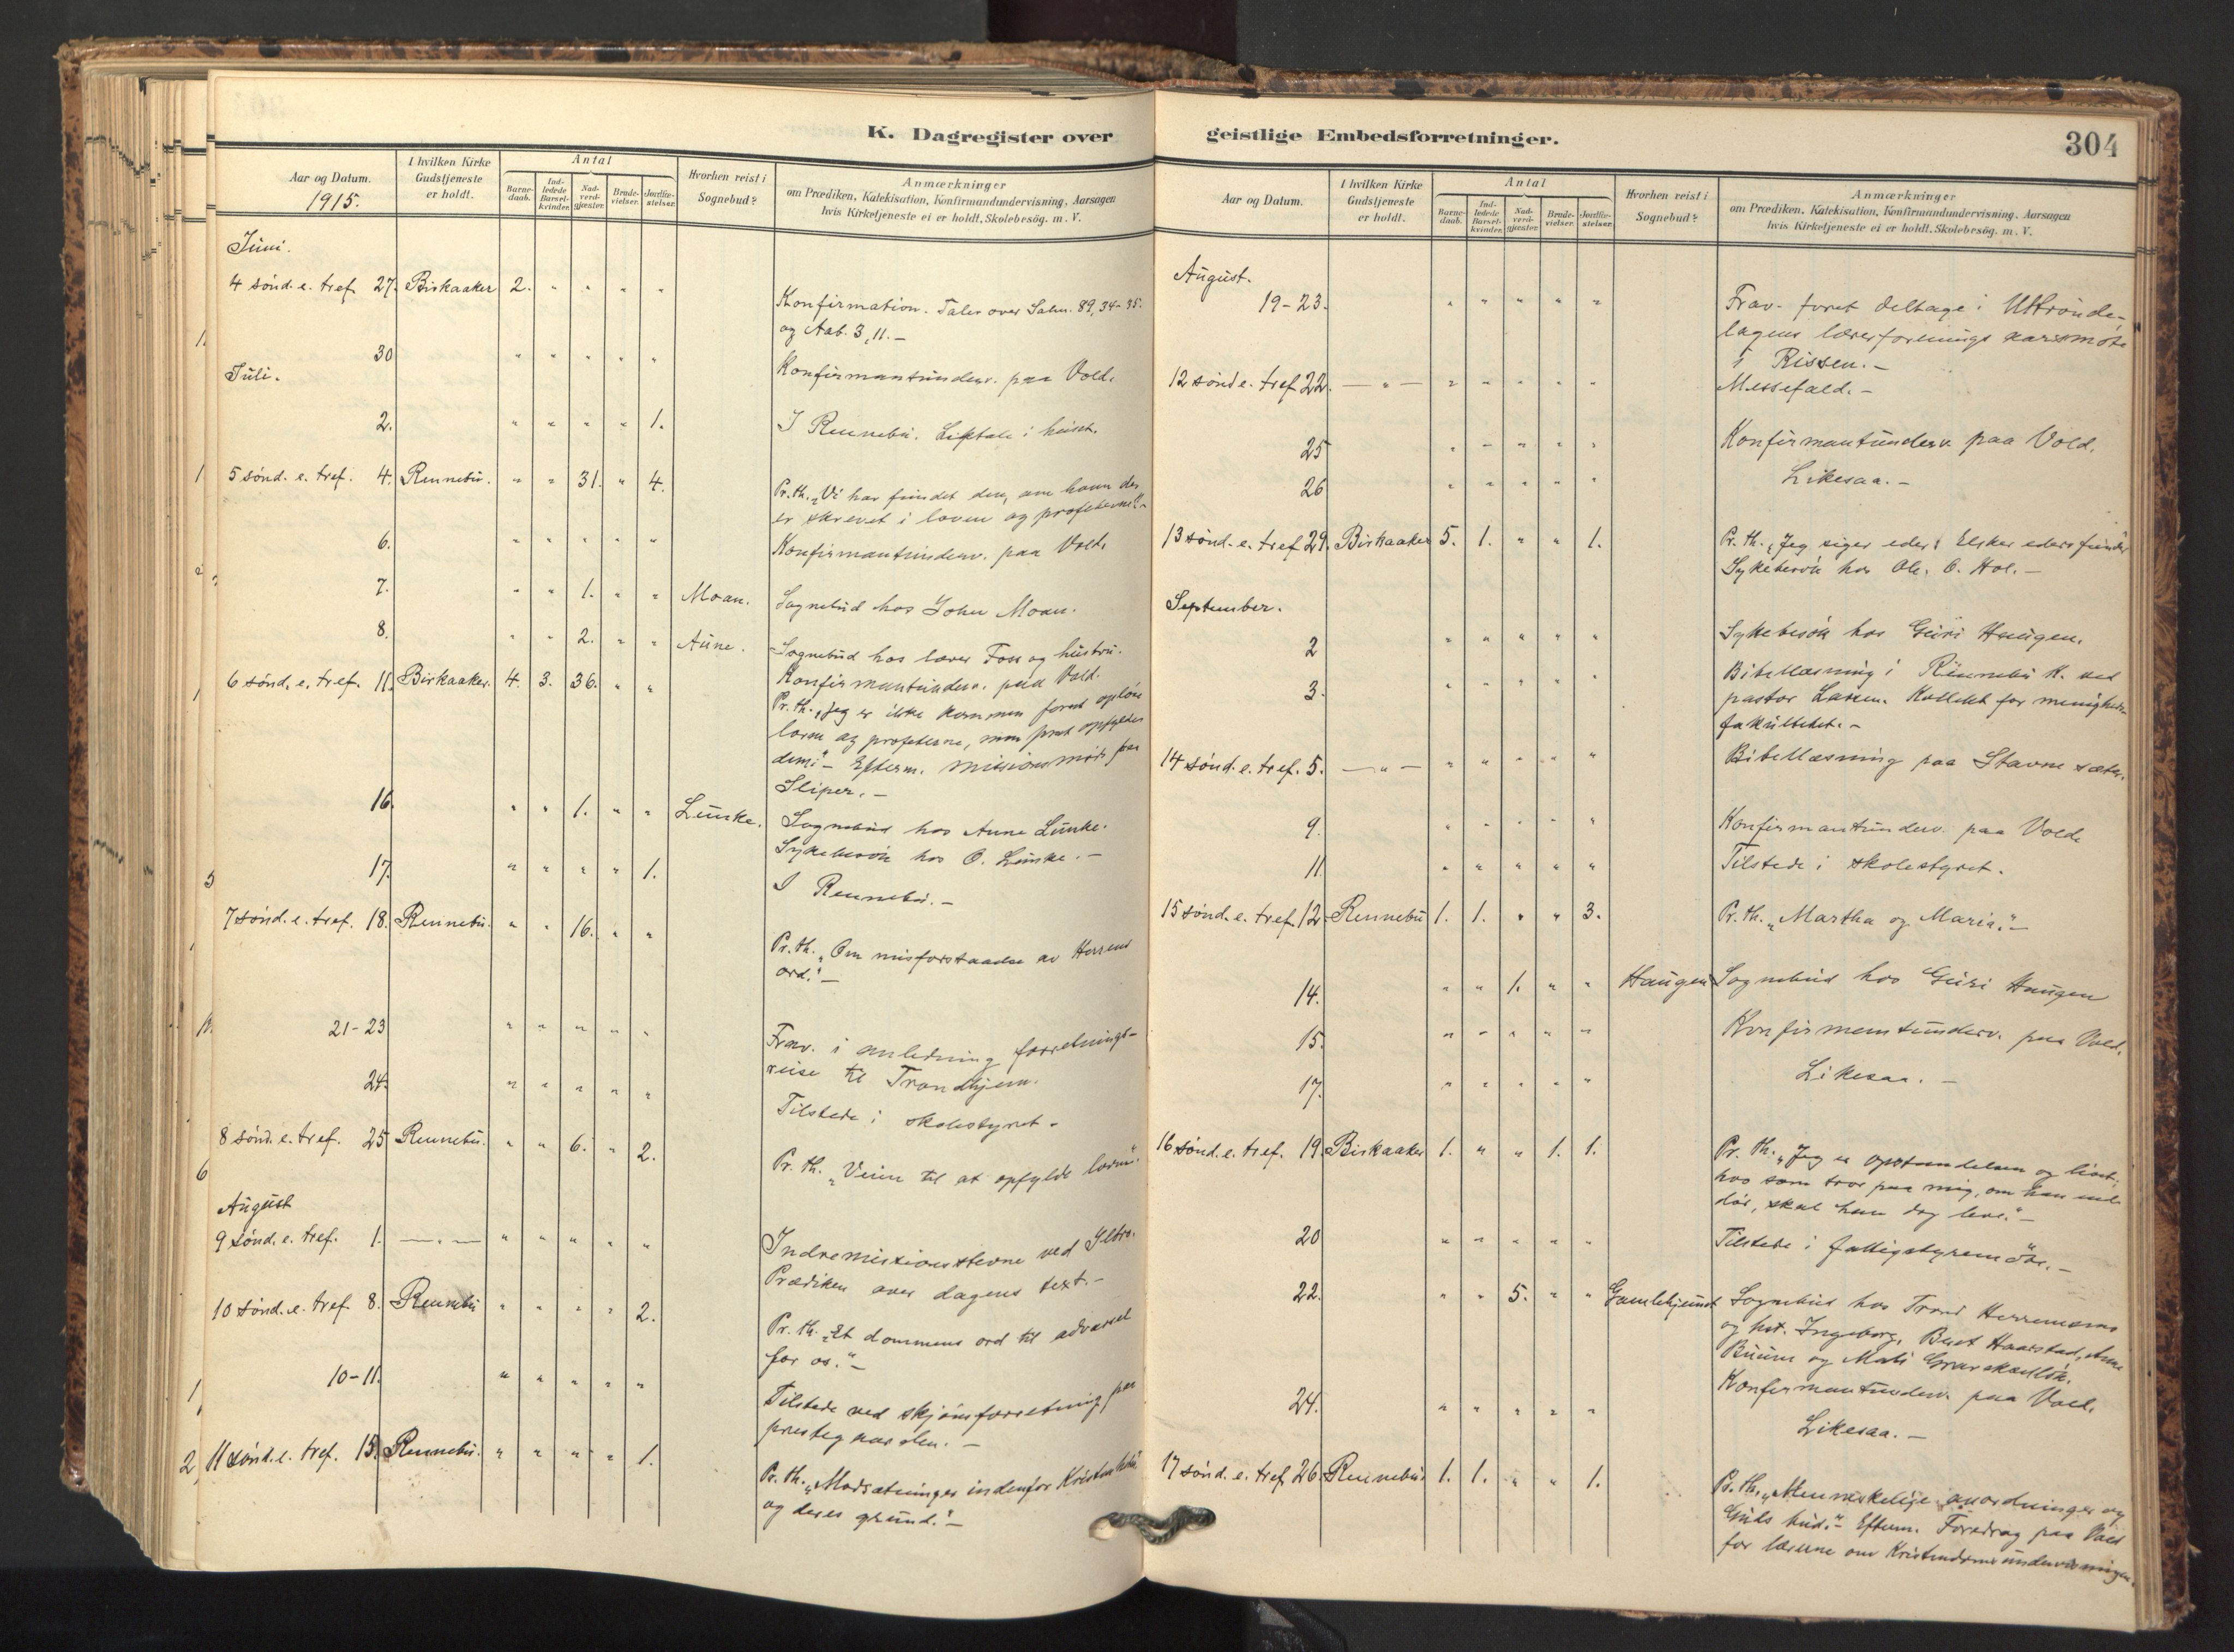 K. Dagregister over
Aar og Datum.
1915.
I hvilken Kirke Gudstjeneste er holdt.
Antal
Barne-daab.
Ind-ledede Barsel-kvinder.
Nad-verd-gjæster.
Brude-vielser.
Jordfæ-stelser.
Hvorhen reist i Sognebud?
Anmærkninger
om Prædiken, Katekisation, Konfirmandundervisning, Aarsagen
hvis Kirketjeneste ei er holdt, Skolebesøg. m. V.
Juni.
4 sønd. e. tref. 27. Birkaaker 2. " " " "
Konfirmation. Taler over Salm. 89, 34-35.
og Aab. 3, 11. –
30 " " " " " Konfirmantunderv. paa Vold.
Juli.
2. " " " " 1. I Rennebu. Liktale i huset.
5 sønd. e. tref. 4. Rennebu. " " 31. " 4.
Pr. th. „Vi har fundet den, om hvem der
er skrevet i loven og profeterne." –
6. " " " " " Konfirmantunderv. paa Vold.
7. " " 1. " " Moan. Sognebud hos John Moan.
8. " " 2. " " Aune. Sognebud hos lærer Foss og hustru.
Konfirmantunderv. paa Vold.
6 sønd. e. tref. 11. Birkaaker. 4. 3. 36. " "
Pr. th. „Jeg er ikke kommen forat opløse
loven og profeterne, men forat opfylde
dem." – Efterm. missionsmøte paa
Sliper. –
16. " " 1. " " Lunke. Sognebud hos Anne Lunke.
Sykebesøk hos O. Lunke. –
17. " " " " 1. I Rennebu. –
7 sønd. e. tref. 18. Rennebu. " " 16. " "
Pr. th. „Om misforstaaelse av Herrens
ord." –
21-23 " " " " " Frav. i anledning forretnings-
reise til Trondhjem.
24. " " " " " Tilstede i skolestyret.
8 sønd. e. tref. 25 Rennebu. " " 6. " 2. Pr. th. „Veien til at opfylde loven".
August
9 sønd. e. tref. 1. — " — " " " " "
Indremissionsstevne ved
Prædiken over dagens text. –
10 sønd. e. tref. 8. Rennebu " " " " 2.
Pr. th. „Et dommens ord til advarsel
for os." –
10-11. " " " " " Tilstede ved skjønsforretning paa
prestegaarden. –
11 sønd. e. tref. 15. Rennebu. " " " " 1.
Pr. th. „Modsætninger indenfor Kristenheten
og deres grund." –
geistlige Embedsforretninger.
304
Aar og Datum.
I hvilken Kirke Gudstjeneste er holdt.
Antal
Barne-daab.
Ind-ledede Barsel-kvinder.
Nad-verd-gjæster.
Brude-vielser.
Jordfæ-stelser.
Hvorhen reist i Sognebud?
Anmærkninger
om Prædiken, Katekisation, Konfirmandundervisning, Aarsagen
hvis Kirketjeneste ei er holdt, Skolebesøg. m. V.
August.
19-23. " " " " " Frav. forat deltage i Uttrønde-
lagens lærerforenings aarsmøte
i Rissen. –
12 sønd e. tref 22. — " — " " " " " Messefald. –
25 " " " " " Konfirmantunderv. paa Vold.
26 " " " " " Likesaa. –
13 sønd. e. tref 29. Birkaaker 5. 1. " " 1. Pr. th. „Jeg siger eder: Elsker eders fiender"
Sykebesøk hos Ole. O. Hol. –
September.
2 " " " " " Sykebesøk hos Guri Haugen.
3. " " " " " Bibellæsning i Rennebu K. ved
pastor Larsen. Kollekt for menigheds-
fakultetet. –
14 sønd. e. tref. 5. — " — " " " " " Bibellæsning paa Stavne sæter.
9. " " " " " Konfirmantunderv. paa Vold.
11. " " " " " Tilstede i skolestyret.
15 sønd. e. tref. 12. Rennebu 1. 1. " " 3. Pr. th. „Martha og Maria." –
14. " " 1. " " Haugen Sognebud hos Guri Haugen
15. " " " " " Konfirmantunderv. paa Vold.
17. " " " " " Likesaa. –
16 sønd. e. tref. 19. Birkaaker 1. " " 1. 1.
Pr. th. „Jeg er opstandelsen og livet;
hvo som tror paa mig, om han end
dør, skal han dog leve." –
20 " " " " " Tilstede i fattigstyremøte. –
22. " " 5. " " Gamlehjemet Sognebud hos Trond
og hst. Ingeborg, Berit Haarstad, Anne
Buum og Mali
24. " " " " " Konfirmantunderv. paa Vold.
Likesaa. –
17 sønd. e. tref. 26. Rennebu. 1. 1. " " 1.
Pr. th. „Menneskelige anordninger og
Guds bud." – Efterm. Foredrag paa Vold
for lærerne om Kristendomsundervisningen.